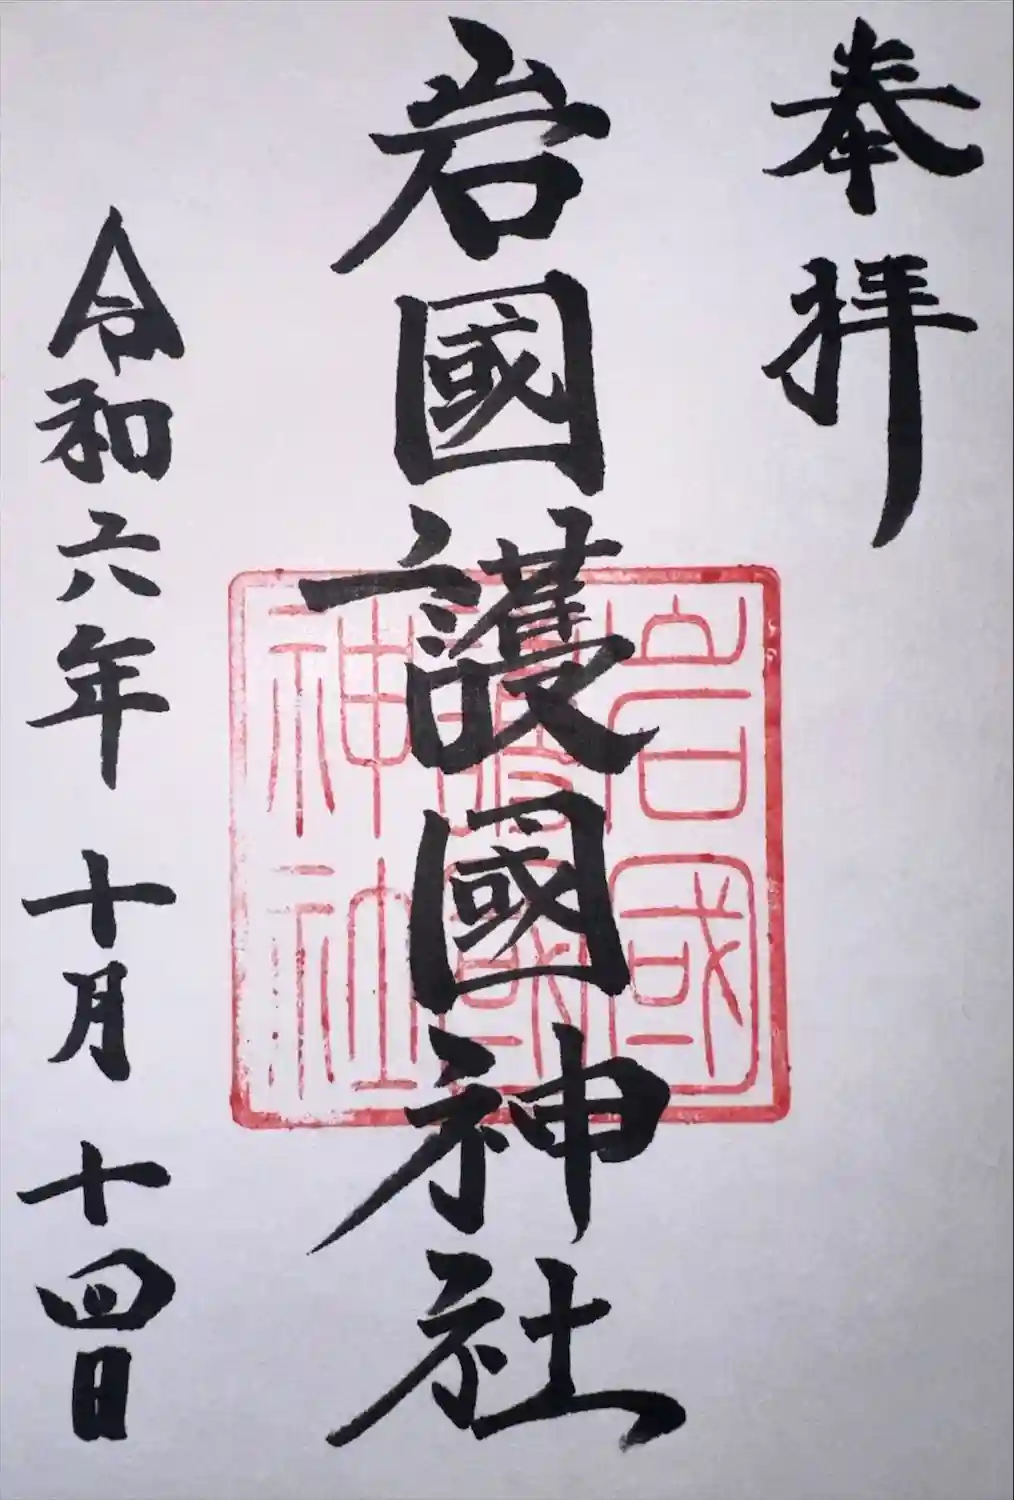 奉拝
岩國護國神社
岩國
護國
神社
令和六年 十月 十四日